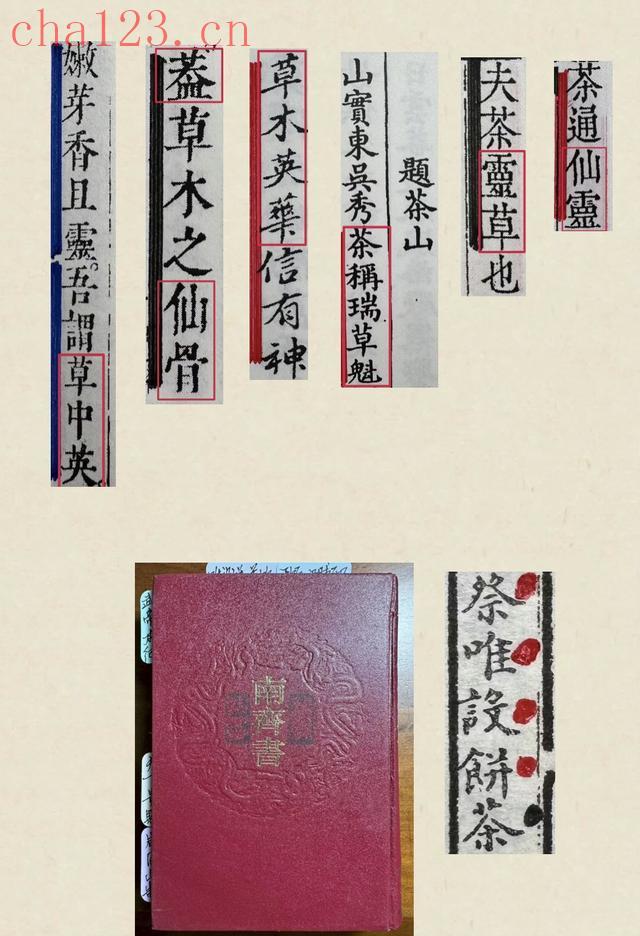 cha123.cn
嫩芽香且靈。吾謂草中英。
葢草木之仙骨
草木英華信有神
題茶山
山實東吳秀茶稱瑞草魁
夫茶靈草也
茶通仙靈
南齊書
祭唯設餅茶